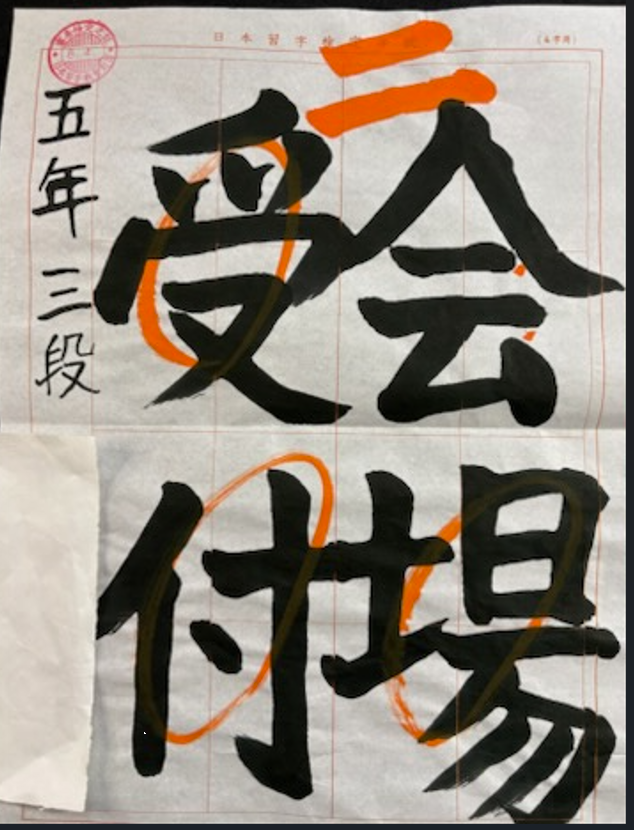 日本習字
二
会場
受付
五年 三段